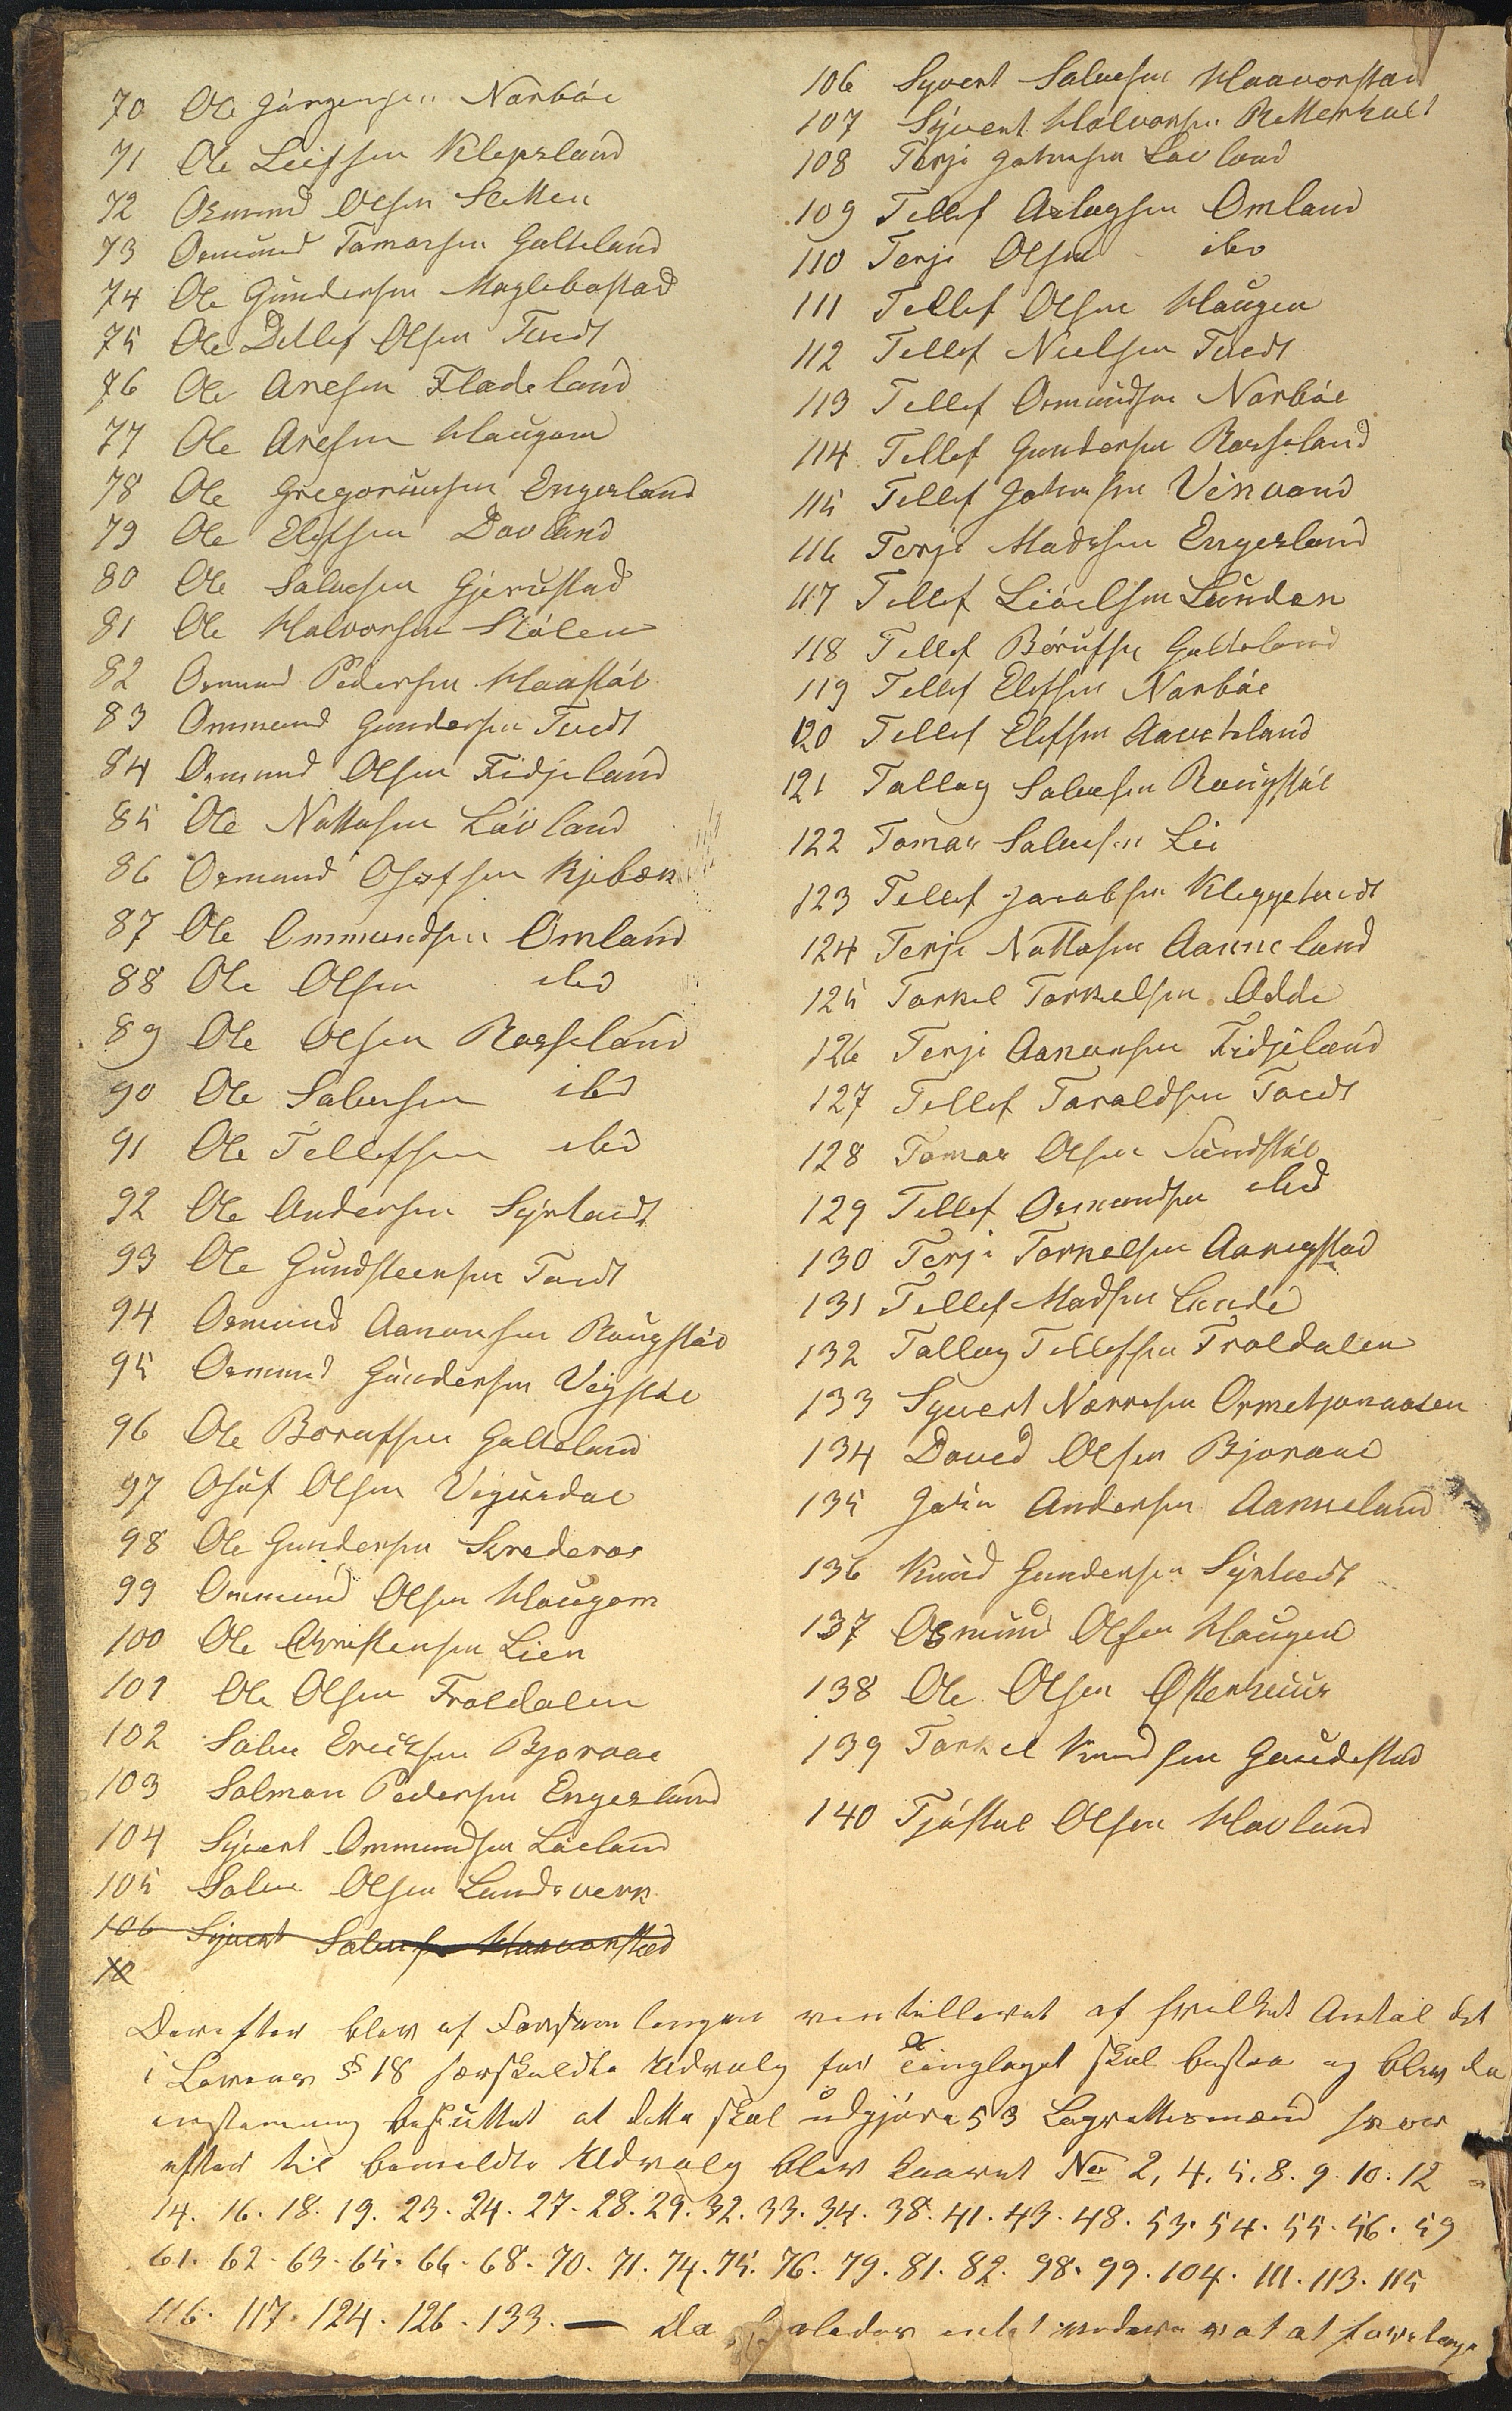 70 Ole Jörgensen Narböe
71 Ole Leifsen Klepsland
72 Osmund Olsen Sletten
73 Osmund Tomassen Galteland
74 Ole Gundersen Maglebostad
75 Ole Detlef Olsen Tvedt
76 Ole Aresen Fladeland
77 Ole Aresen Haugom
78 Ole Gregoriusen Engesland
79 Ole Elefsen Dovland
80 Ole Salvesen Gjerustad
81 Ole Halvorsen Stölen
82 Osmund Pedersen Haastöl
83 Ommund Gundersen Tvedt
84 Osmund Olsen Fidjeland
85 Ole Nottosen Lövland
86 Osmund Osufsen Kjebæk
87 Ole Ommundsen Omland
88 Ole Olsen ibid
89 Ole Olsen Rosseland
90 Ole Salvesen ibid
91 Ole Tellefsen ibid
92 Ole Andersen Syrtvedt
93 Ole Gundsteensen Tvedt
94 Osmund Aanonsen Raugstöl
95 Osmund Gundersen Vegstöl
96 Ole Borufsen Galteland
97 Osuf Olsen Vegusdal
98 Ole Gundersen Skrederos
99 Ommund Olsen Haugom
100 Ole Christensen Lien
101 Ole Olsen Froldalen
102 Salve Ericksen Bjoraae
103 Salmon Pedersen Engesland
104 Syvert Ommundsen Löeland
105 Salve Olsen Landsverk
106 Syvert Salvesen Haavorstad
10
106 Syvert Salvesen Haavorstad
107 Syvert Halvorsen Retterholt
108 Terje Johnsen Lövland
109 Tellef Aslagsen Omland
110 Terje Olsen ibid
111 Tellef Olsen Haugen
112 Tellef Nielsen Tvedt
113 Tellef Osmundsen Narböe
114 Tellef Gundersen Rosseland
115 Tellef Johnsen Vehvand
116 Terje Madssen Engesland
117 Tellef Liöelsen Lunden
118 Tellef Börufsen Galteland
119 Tellef Elefsen Narböe
120 Tellef Elefsen Haveland
121 Tallag Salvesen Raugstöl
122 Tomas Salvesen Lie
123 Tellef Jacobsen Kleggetvedt
124 Terje Nottosen Aanneland
125 Torkel Torkelsen Odde
126 Terje Aanonsen Fidjeland
127 Tellef Taraldsen Tvedt
128 Tomas Olsen Sundstöl
129 Tellef Osmundsen ibid
130 Terje Torkelsen Aanegstad
131 Tellef Madsen Lande
132 Tallag Tellefsen Froldalen
133 Syvert Norresen Ormetjonaasen
134 Doved Olsen Bjoraae
135 John Andersen Aanneland
136 Knud Gundersen Syrtvedt
137 Osmund Olsen Haugen
138 Ole Olsen Østerhuus
139 Torkel Knudsen Gaudestad
140 Tjöstul Olsen Hovland
Derefter blev af Forsamlingen ventilleret af hvilket Antal det
i Lovens § 18 foreskuldte Udvalg for Tinglaget skal bestaa og blev da
enstemmig besluttet at dette skal udgjöre 53 Lagrettesmænd hvor
efter til bemeldte Udvalg blev kaaret No 2, 4. 5. 8. 9. 10. 12
14. 16. 18. 19. 23. 24. 27. 28. 29. 32. 33. 34. 38. 41. 43. 48. 53. 54. 55. 56. 59
61. 62. 63. 65. 66. 68. 70. 71. 74. 75. 76. 79. 81. 82. 98. 99. 104. 111. 113. 115
116. 117. 124. 126. 133. — Da saaledes intet videre var at foretage